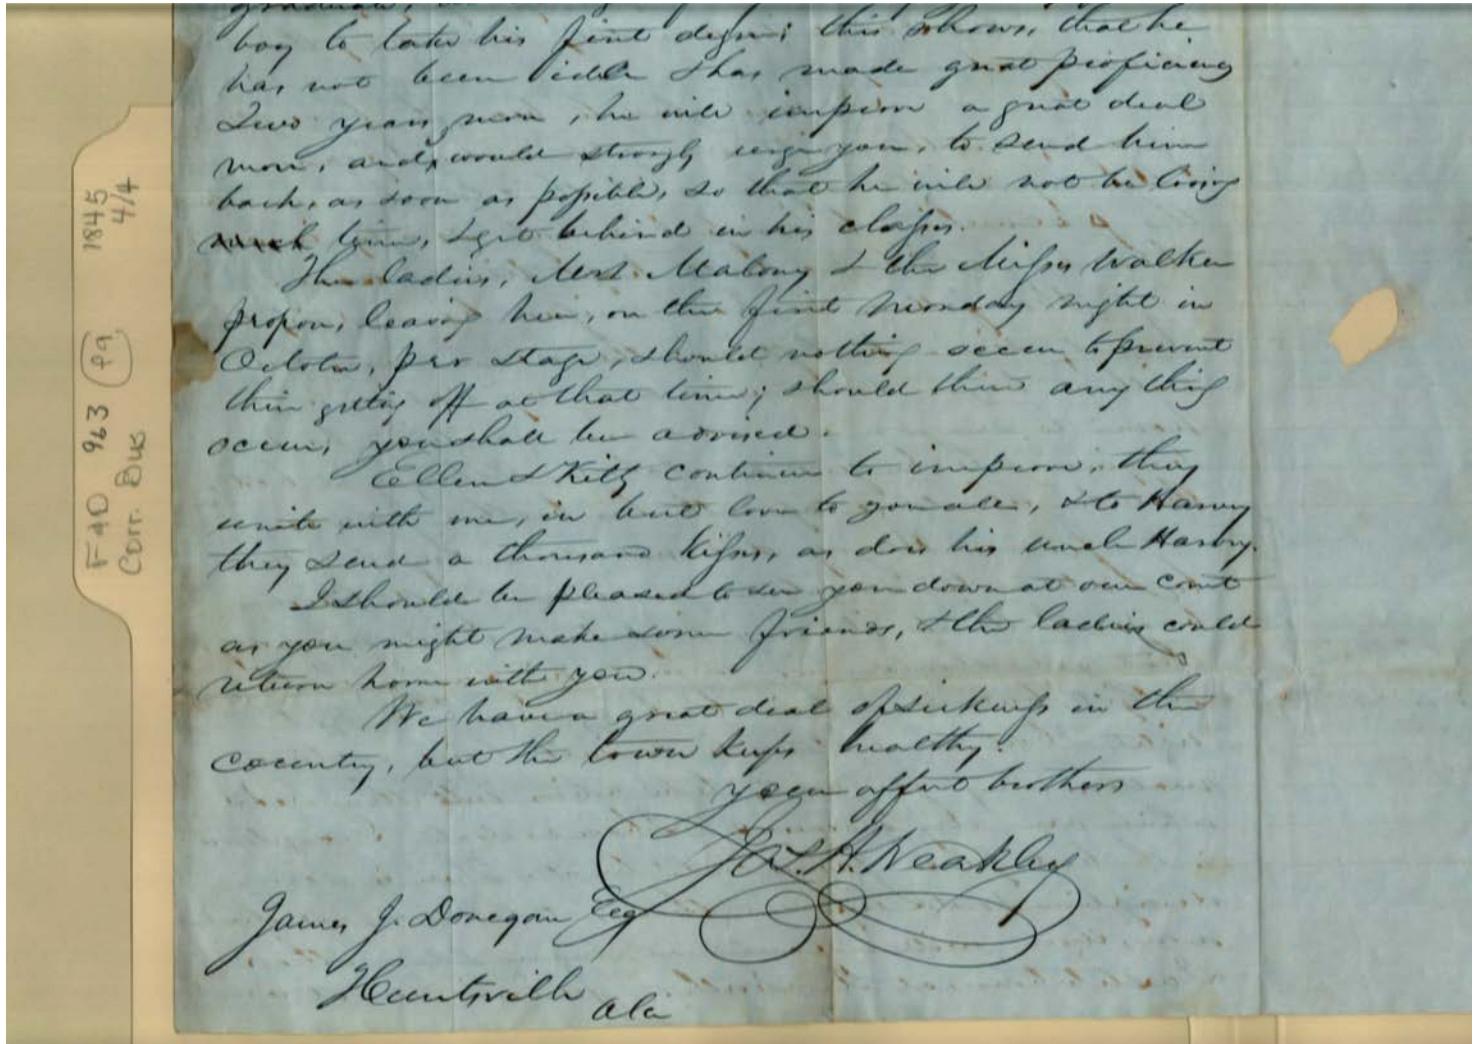 graduate,
boy to take his first degree; this shows, that he
has not been idle & has made great proficiency
Two years more, he will improve a great deal
more, and, would strongly urge you, to send him
back, as soon as possible, so that he will not be losing
much time, & get behind in his classes.
The ladies, Mrs. Malony & the Misses Walker
propose, leaving here, on the first monday night in
October, per Stage, should nothing occur to prevent
their getting off at that time; should there any thing
occur, you shall be advised.
Ellen & Kitty continue to improve, they
unite with me, in best love to you all, & to Harvy
they send a thousand kisses, as does his uncle Harvy.
I should be pleased to see you down at our court
as you might make some friends, & the ladies could
return home with you.
We have a great deal of sickness in the
country, but the town keeps healthy.
your affect brother
Jas. H. Weakley
James J. Donegan Esq
Huntsville
Ala
1845
4/4
F 40 963 P9
Corr. Bus